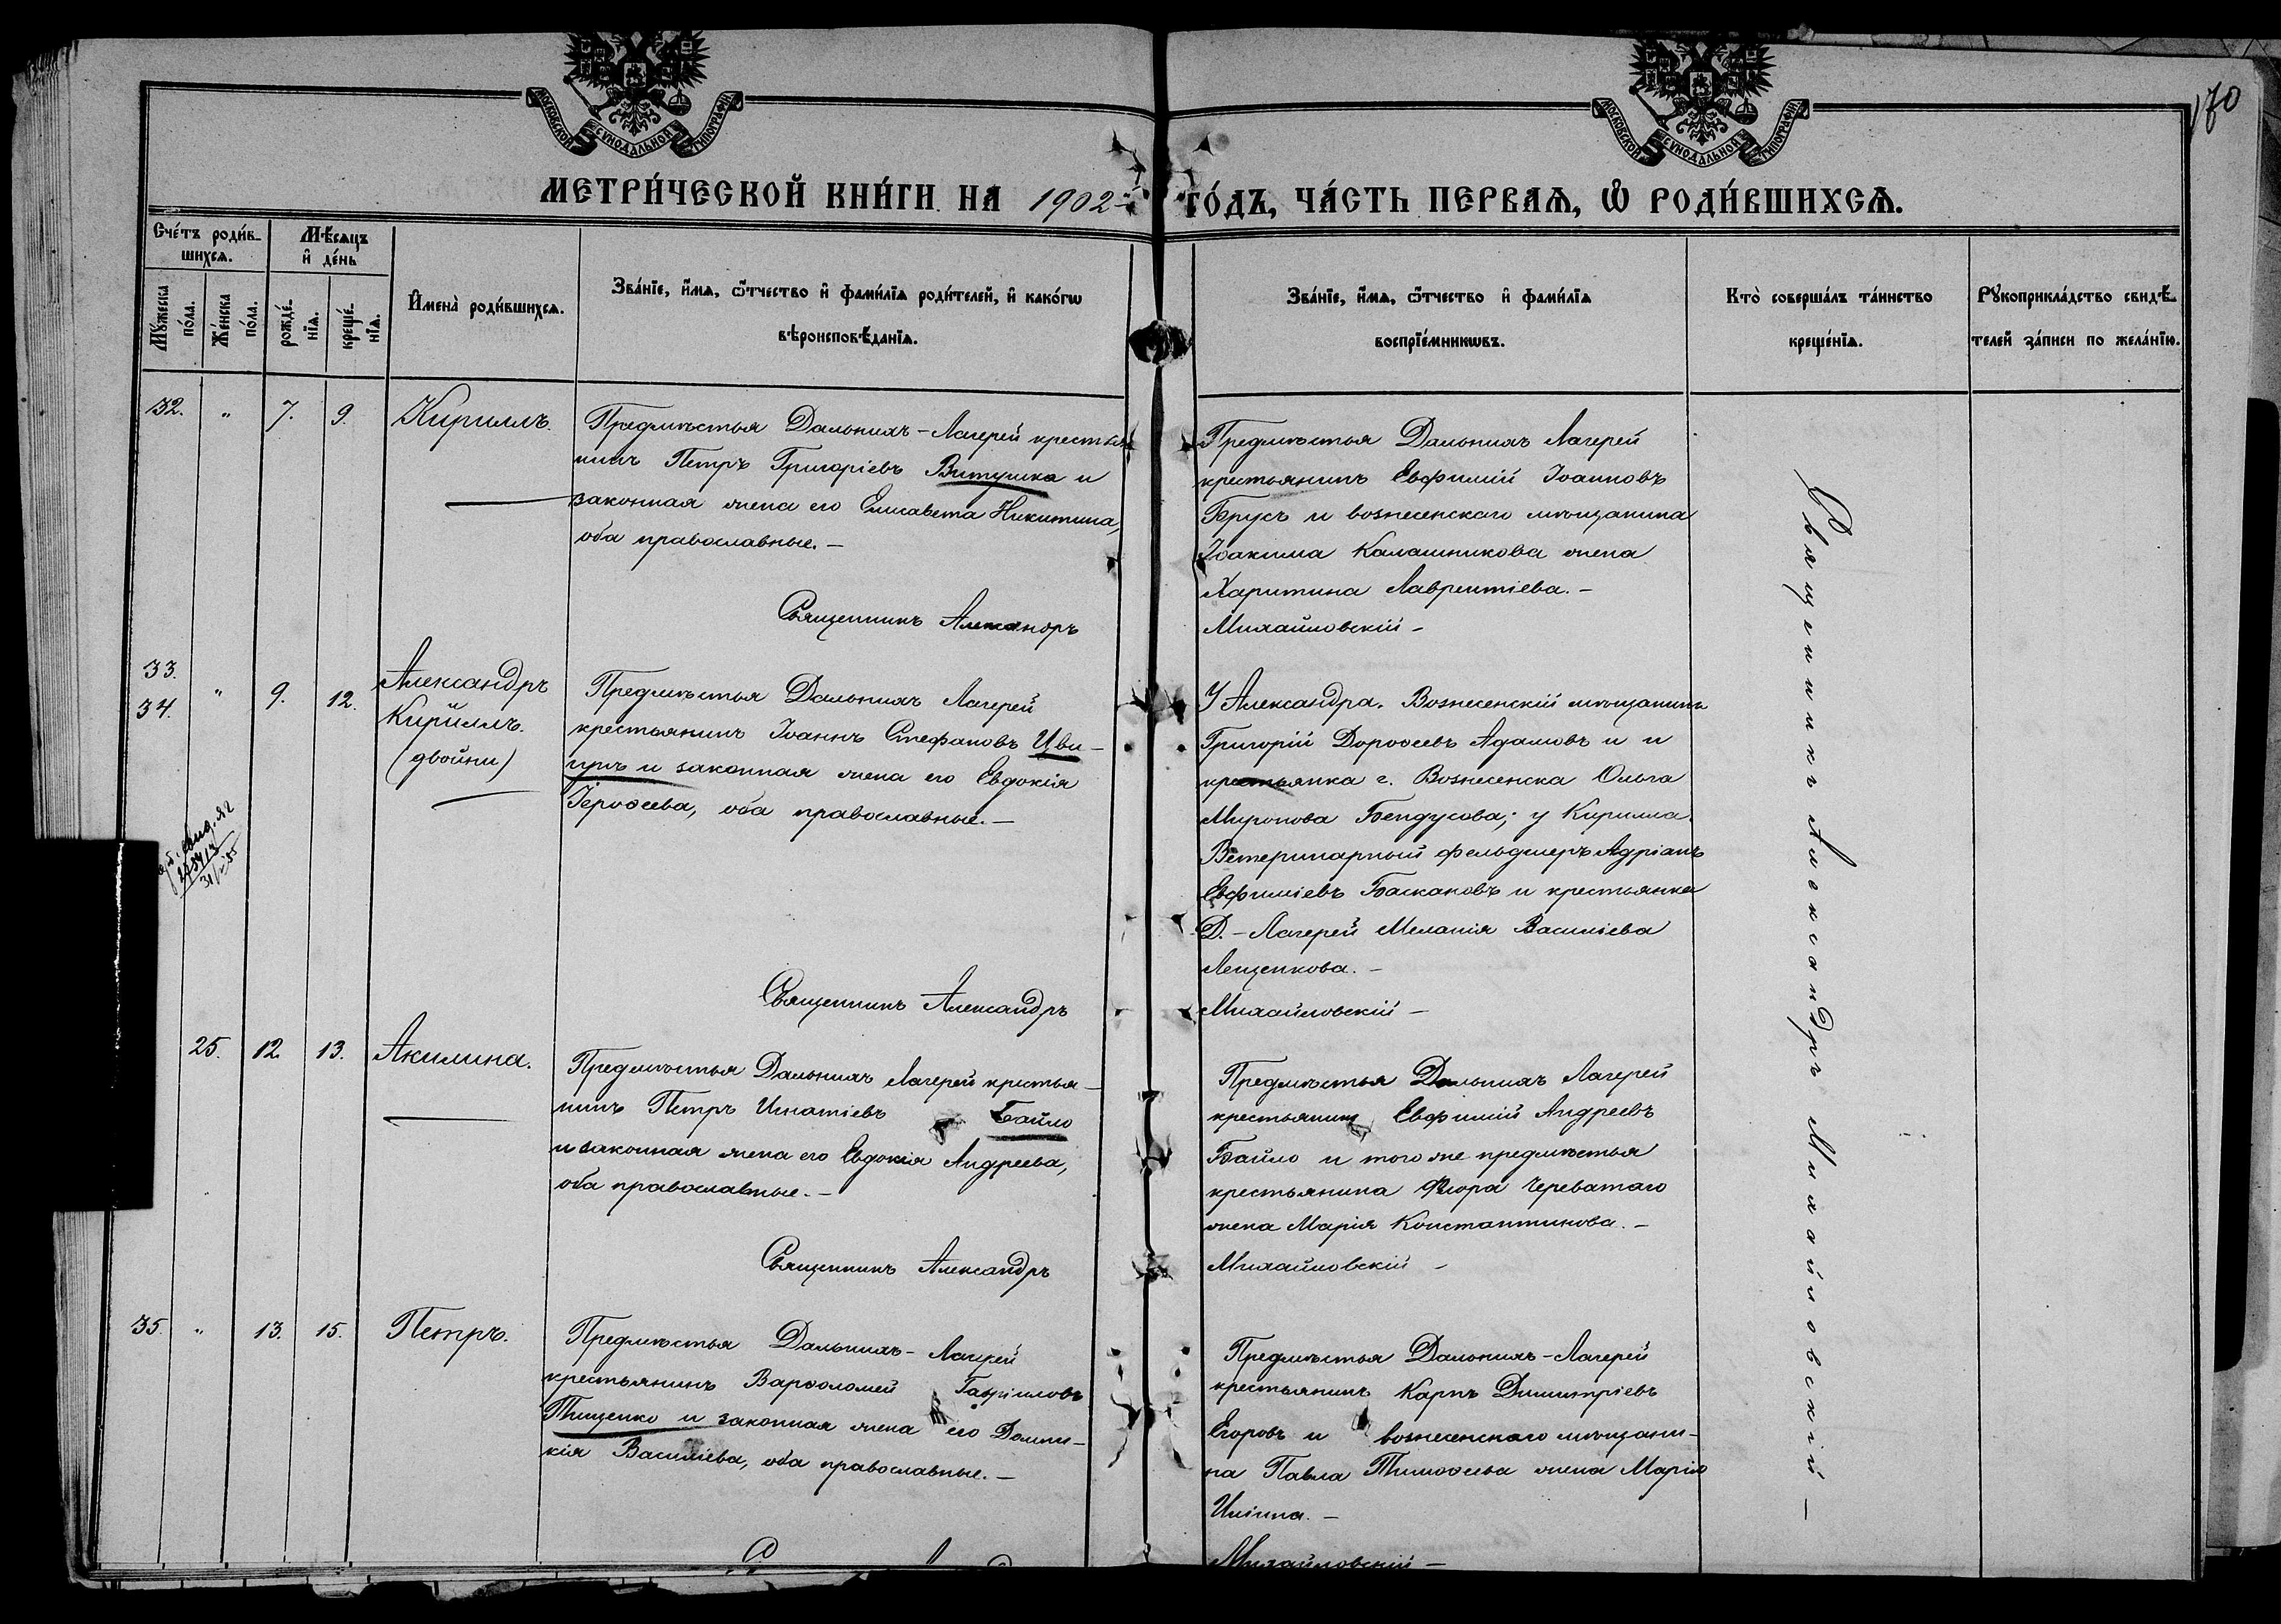 170
МОСКОВСКОЙ СѴНОДАЛЬНОЙ ТИПОГРАФІИ
МОСКОВСКОЙ СѴНОДАЛЬНОЙ ТИПОГРАФІИ
МЕТРИ́ЧЕСКОЙ КНИ́ГИ НА 1902 ГО́ДЪ, ЧА́СТЬ ПЕРВАѦ, Ѽ РОДИ́ВШИХСѦ.
Сче́тъ роди́в-
шихсѧ.
Мѣ́сѧцъ
и҆ де́нь
Мꙋ́жеска
по́ла.
Же́нска
по́ла.
рожде́-
нїѧ.
креще́-
нїѧ.
И҆мена̀ роди́вшихсѧ.
Зва́нїе, и҆́мѧ, ѻ҆́тчество и҆ фами́лїѧ роди́телей, и҆ како́гѡ
вѣроисповѣ́данїѧ.
Зва́нїе, и҆́мѧ, ѻ҆́тчество и҆ фами́лїѧ
воспрїе́мникѡвъ.
Кто̀ соверша́лъ та́инство
креще́нїѧ.
Рꙋкоприкла́дство свидѣ́-
телей за́писи по жела́нїю.
32. " 7. 9. Кириллъ.
Предмѣстья Дальнихъ-Лагерей крестья
нинъ Петръ Григоріевъ Витушка и
законная жена его Елисавета Никитина,
оба православные.-
Священникъ Александръ
Предмѣстья Дальнихъ Лагерей
крестьянинъ Евфимій Іоанновъ
Брусъ и вознесенскаго мѣщанина
Іоакима Калашникова жена
Харитина Лаврентіева.-
Михайловскій-
33.
34. " 9. 12. Александръ
Кириллъ.
(двойни)
Предмѣстья Дальнихъ Лагерей
крестьянинъ Іоаннъ Стефановъ Цви-
гунъ и законная жена его Евдокія
Іероѳеева, оба православные.-
Священникъ Александръ
У Александра. Вознесенскій мѣщанинъ
Григорій Дороѳеевъ Адамовъ и и
крестьянка г. Вознесенска Ольга
Миронова Бендусова; у Кирилла
Ветеринарный фельдшеръ Адріанъ
Евфиміевъ Баскаковъ и крестьянка
Д.-Лагерей Меланія Василіева
Лещенкова.-
Михайловскій-
25. 12. 13. Акилина.
Предмѣстья Дальнихъ Лагерей крестья-
нинъ Петръ Игнатіевъ Байло
и законная жена его Евдокія Андреева,
оба православные.-
Священникъ Александръ
Предмѣстья Дальнихъ Лагерей
крестьянинъ Евфимій Андреевъ
Байло и того же предмѣстья
крестьянина Флора Череватаго
жена Марія Константинова.-
Михайловскій-
35. " 13. 15. Петръ.
Предмѣстья Дальнихъ-Лагерей
крестьянинъ Варѳоломей Гавріиловъ
Тищенко и законная жена его Домни-
кія Василіева, оба православные.-
Предмѣстья Дальнихъ-Лагерей
крестьянинъ Карпъ Димитріевъ
Егоровъ и вознесенскаго мѣщани-
на Павла Тимоѳеева жена Марія
Иліина.-
Михайловскій-
Священникъ Александръ Михайловскій-